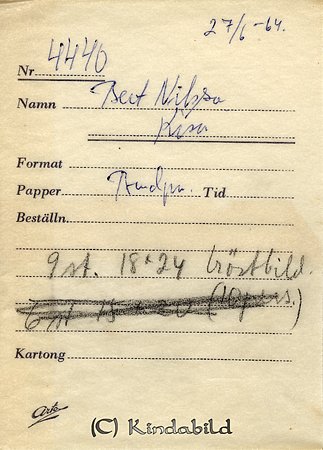 27/6-64.
Nr 4440
Namn Bert Nilsson
Kisa
Format
Papper Tid
Beställn.
9 st. 18x24 bröstbild.
6 st
Kartong
Ark
(C) Kindabild